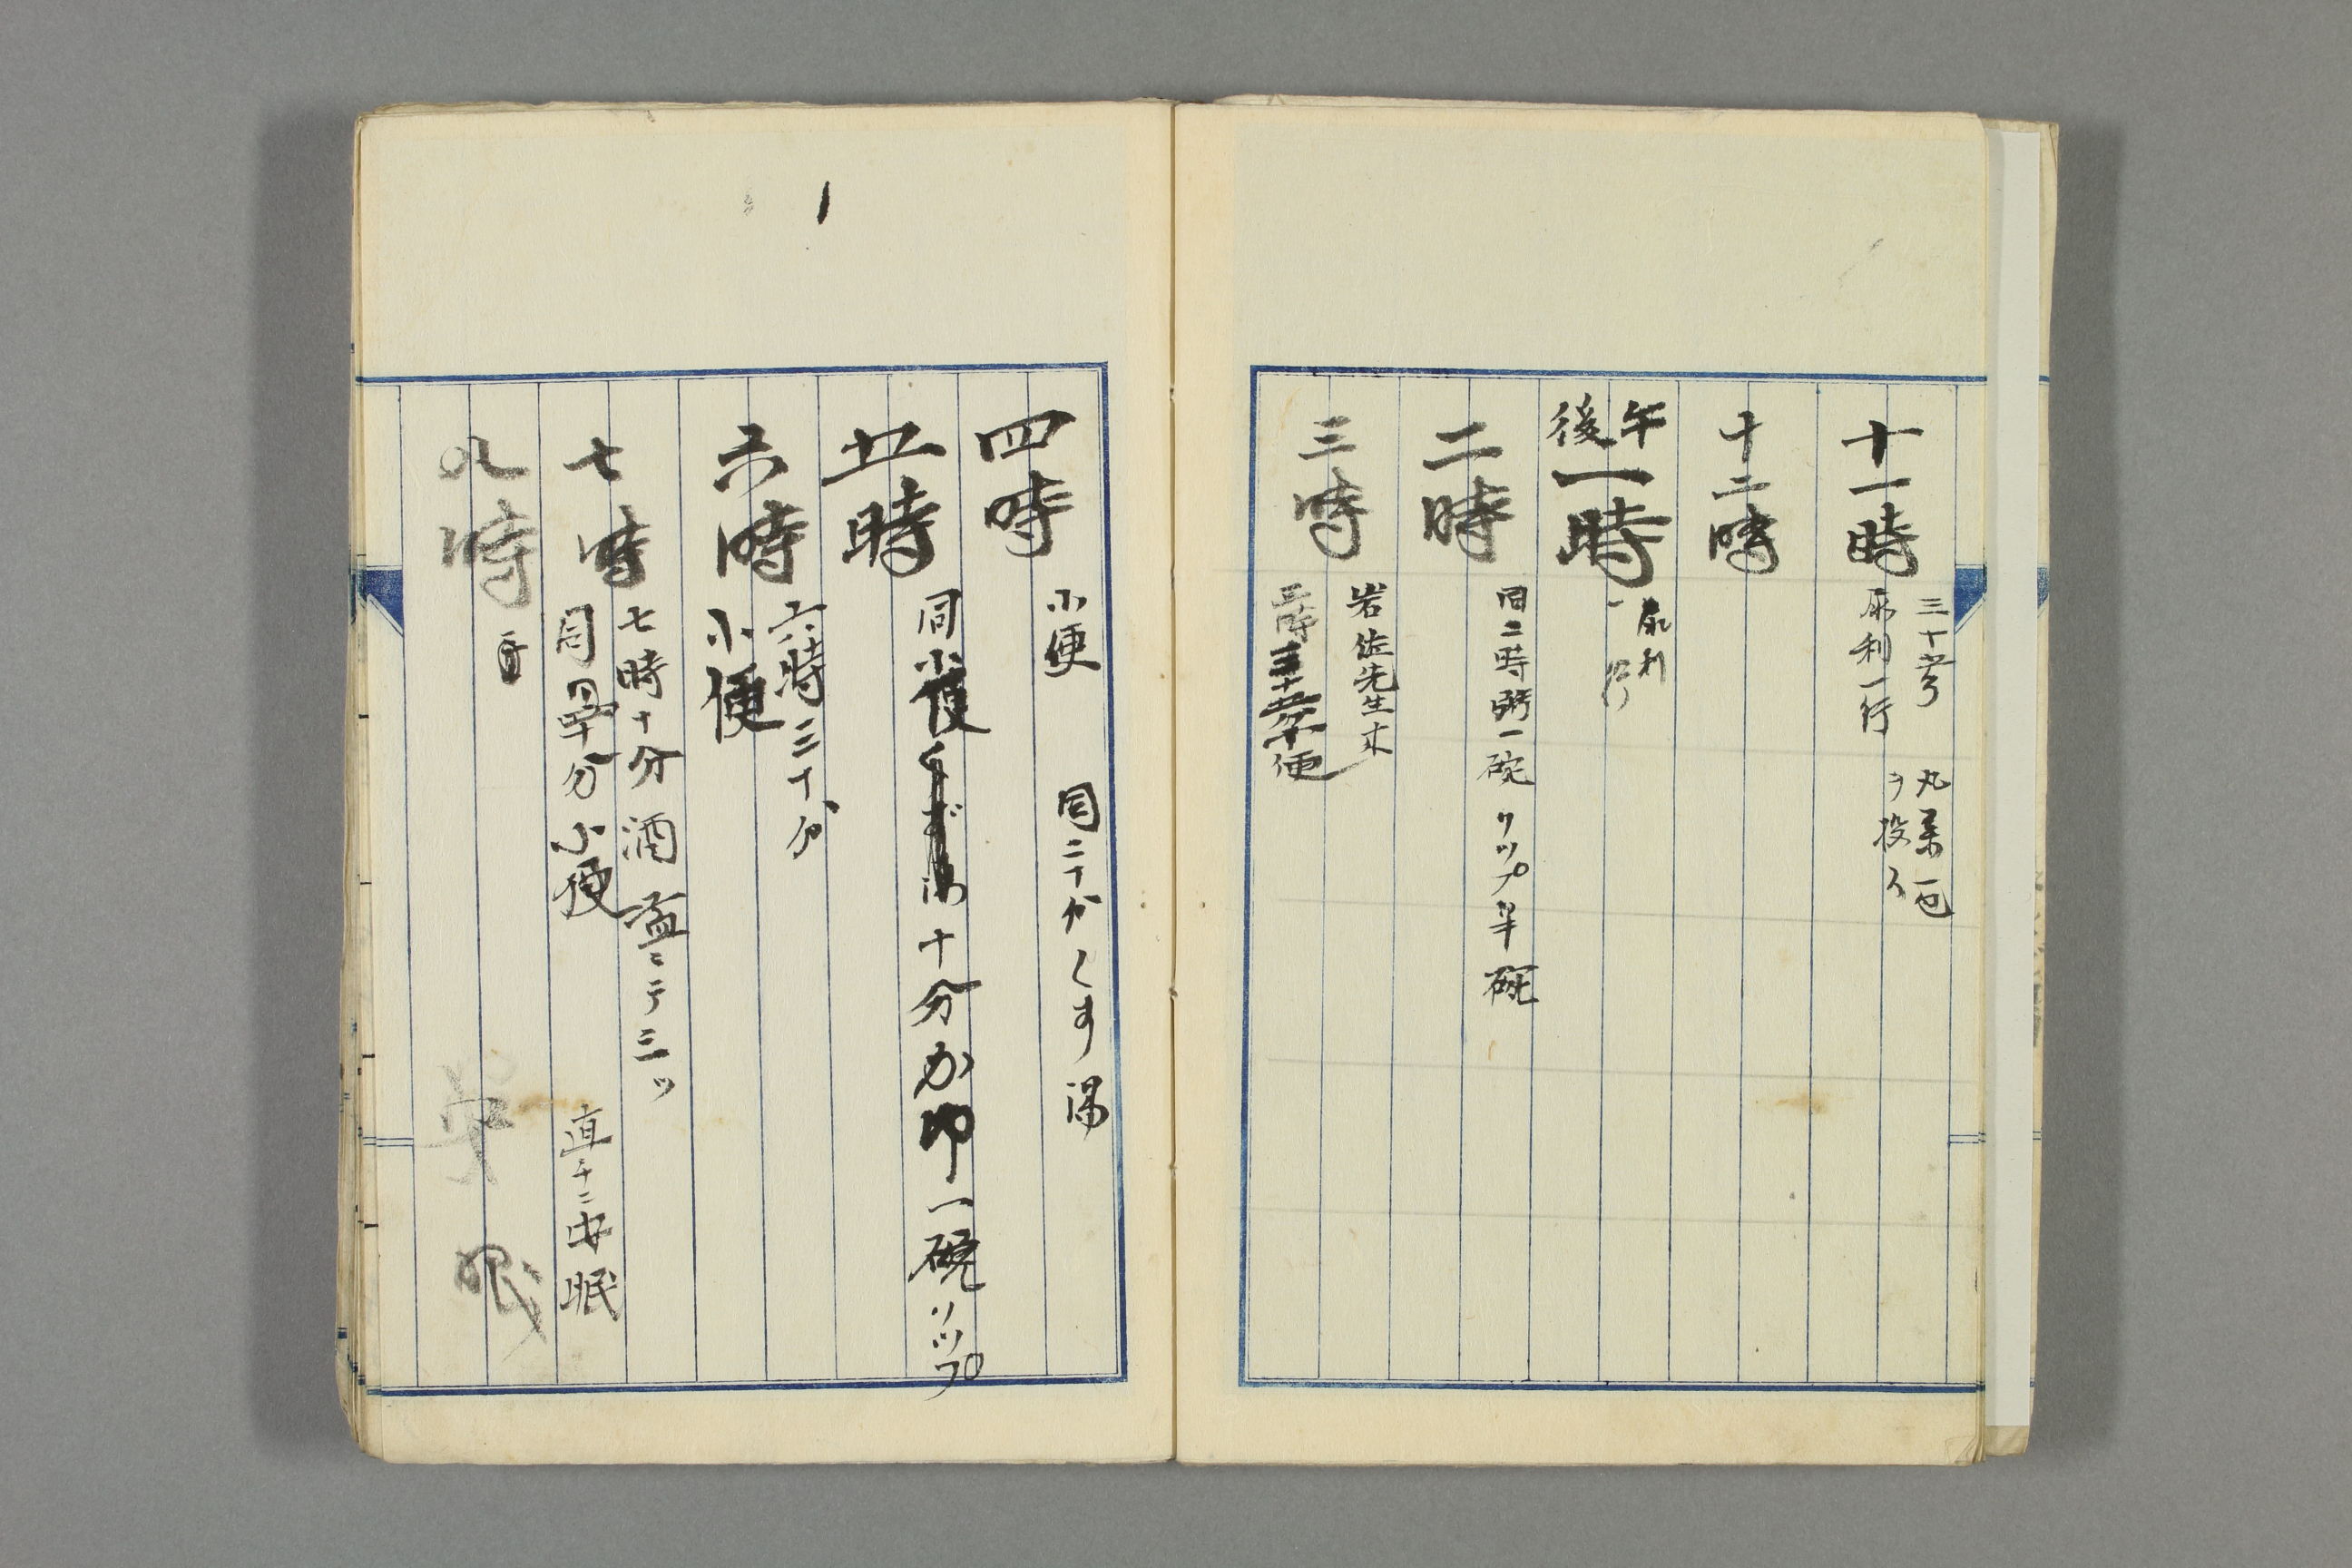 十一時
三十分
尿利一行
丸薬一包
ヲ投ス
十二時
午後一時
尿利
一行
二時
同二時粥一碗 ソップ半碗
三時
岩佐先生来
三時三十五分小便
四時
小便 同二十分くす湯
五時
同小便
十分か卵一碗ソップ
六時
六時三十分
小便
七時
七時十分酒盃ニテ三ツ
同四十分小便 直チニ安眠
九時
安眠